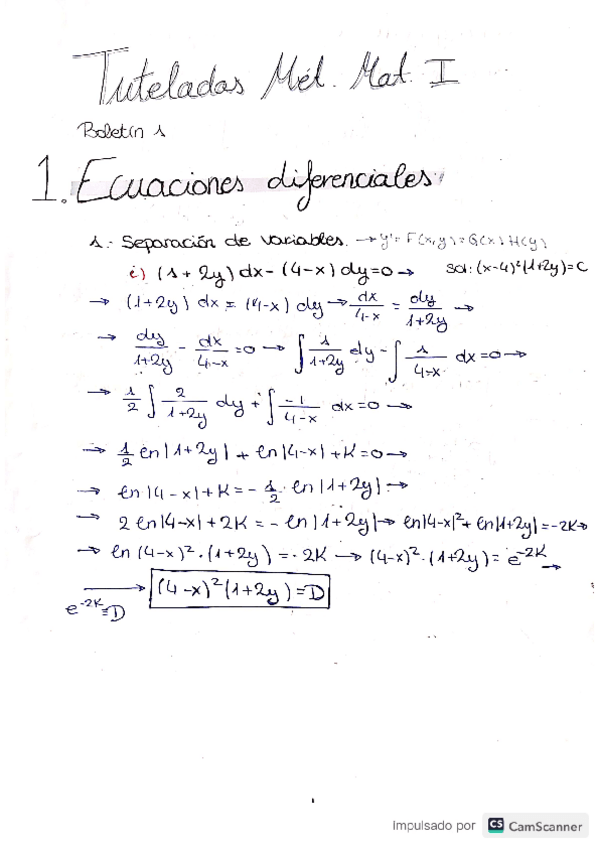 Tuteladas Mét. Mat. I
Boletín 1
1. Ecuaciones diferenciales
1.- Separación de variables. → y' = F(x,y) = G(x) H(y)
i) (1 + 2y) dx - (4-x) dy = 0 → Sol: (x-4)²(1+2y) = C
→ (1+2y) dx = (4-x) dy → dx/4-x = dy/1+2y →
→ dy/1+2y - dx/4-x = 0 → ∫ 1/1+2y dy - ∫ 1/4-x dx = 0 →
→ 1/2 ∫ 2/1+2y dy + ∫ -1/4-x dx = 0 →
→ 1/2 ln|1+2y| + ln|4-x| + K = 0 →
→ ln|4-x| + K = - 1/2 · ln|1+2y| →
→ 2 ln|4-x| + 2K = - ln|1+2y| → ln|4-x|² + ln|1+2y| = -2K →
→ ln (4-x)² · (1+2y) = - 2K → (4-x)² · (1+2y) = e^-2K →
e^-2K = D → (4-x)² (1+2y) = D
1
Impulsado por CS CamScanner